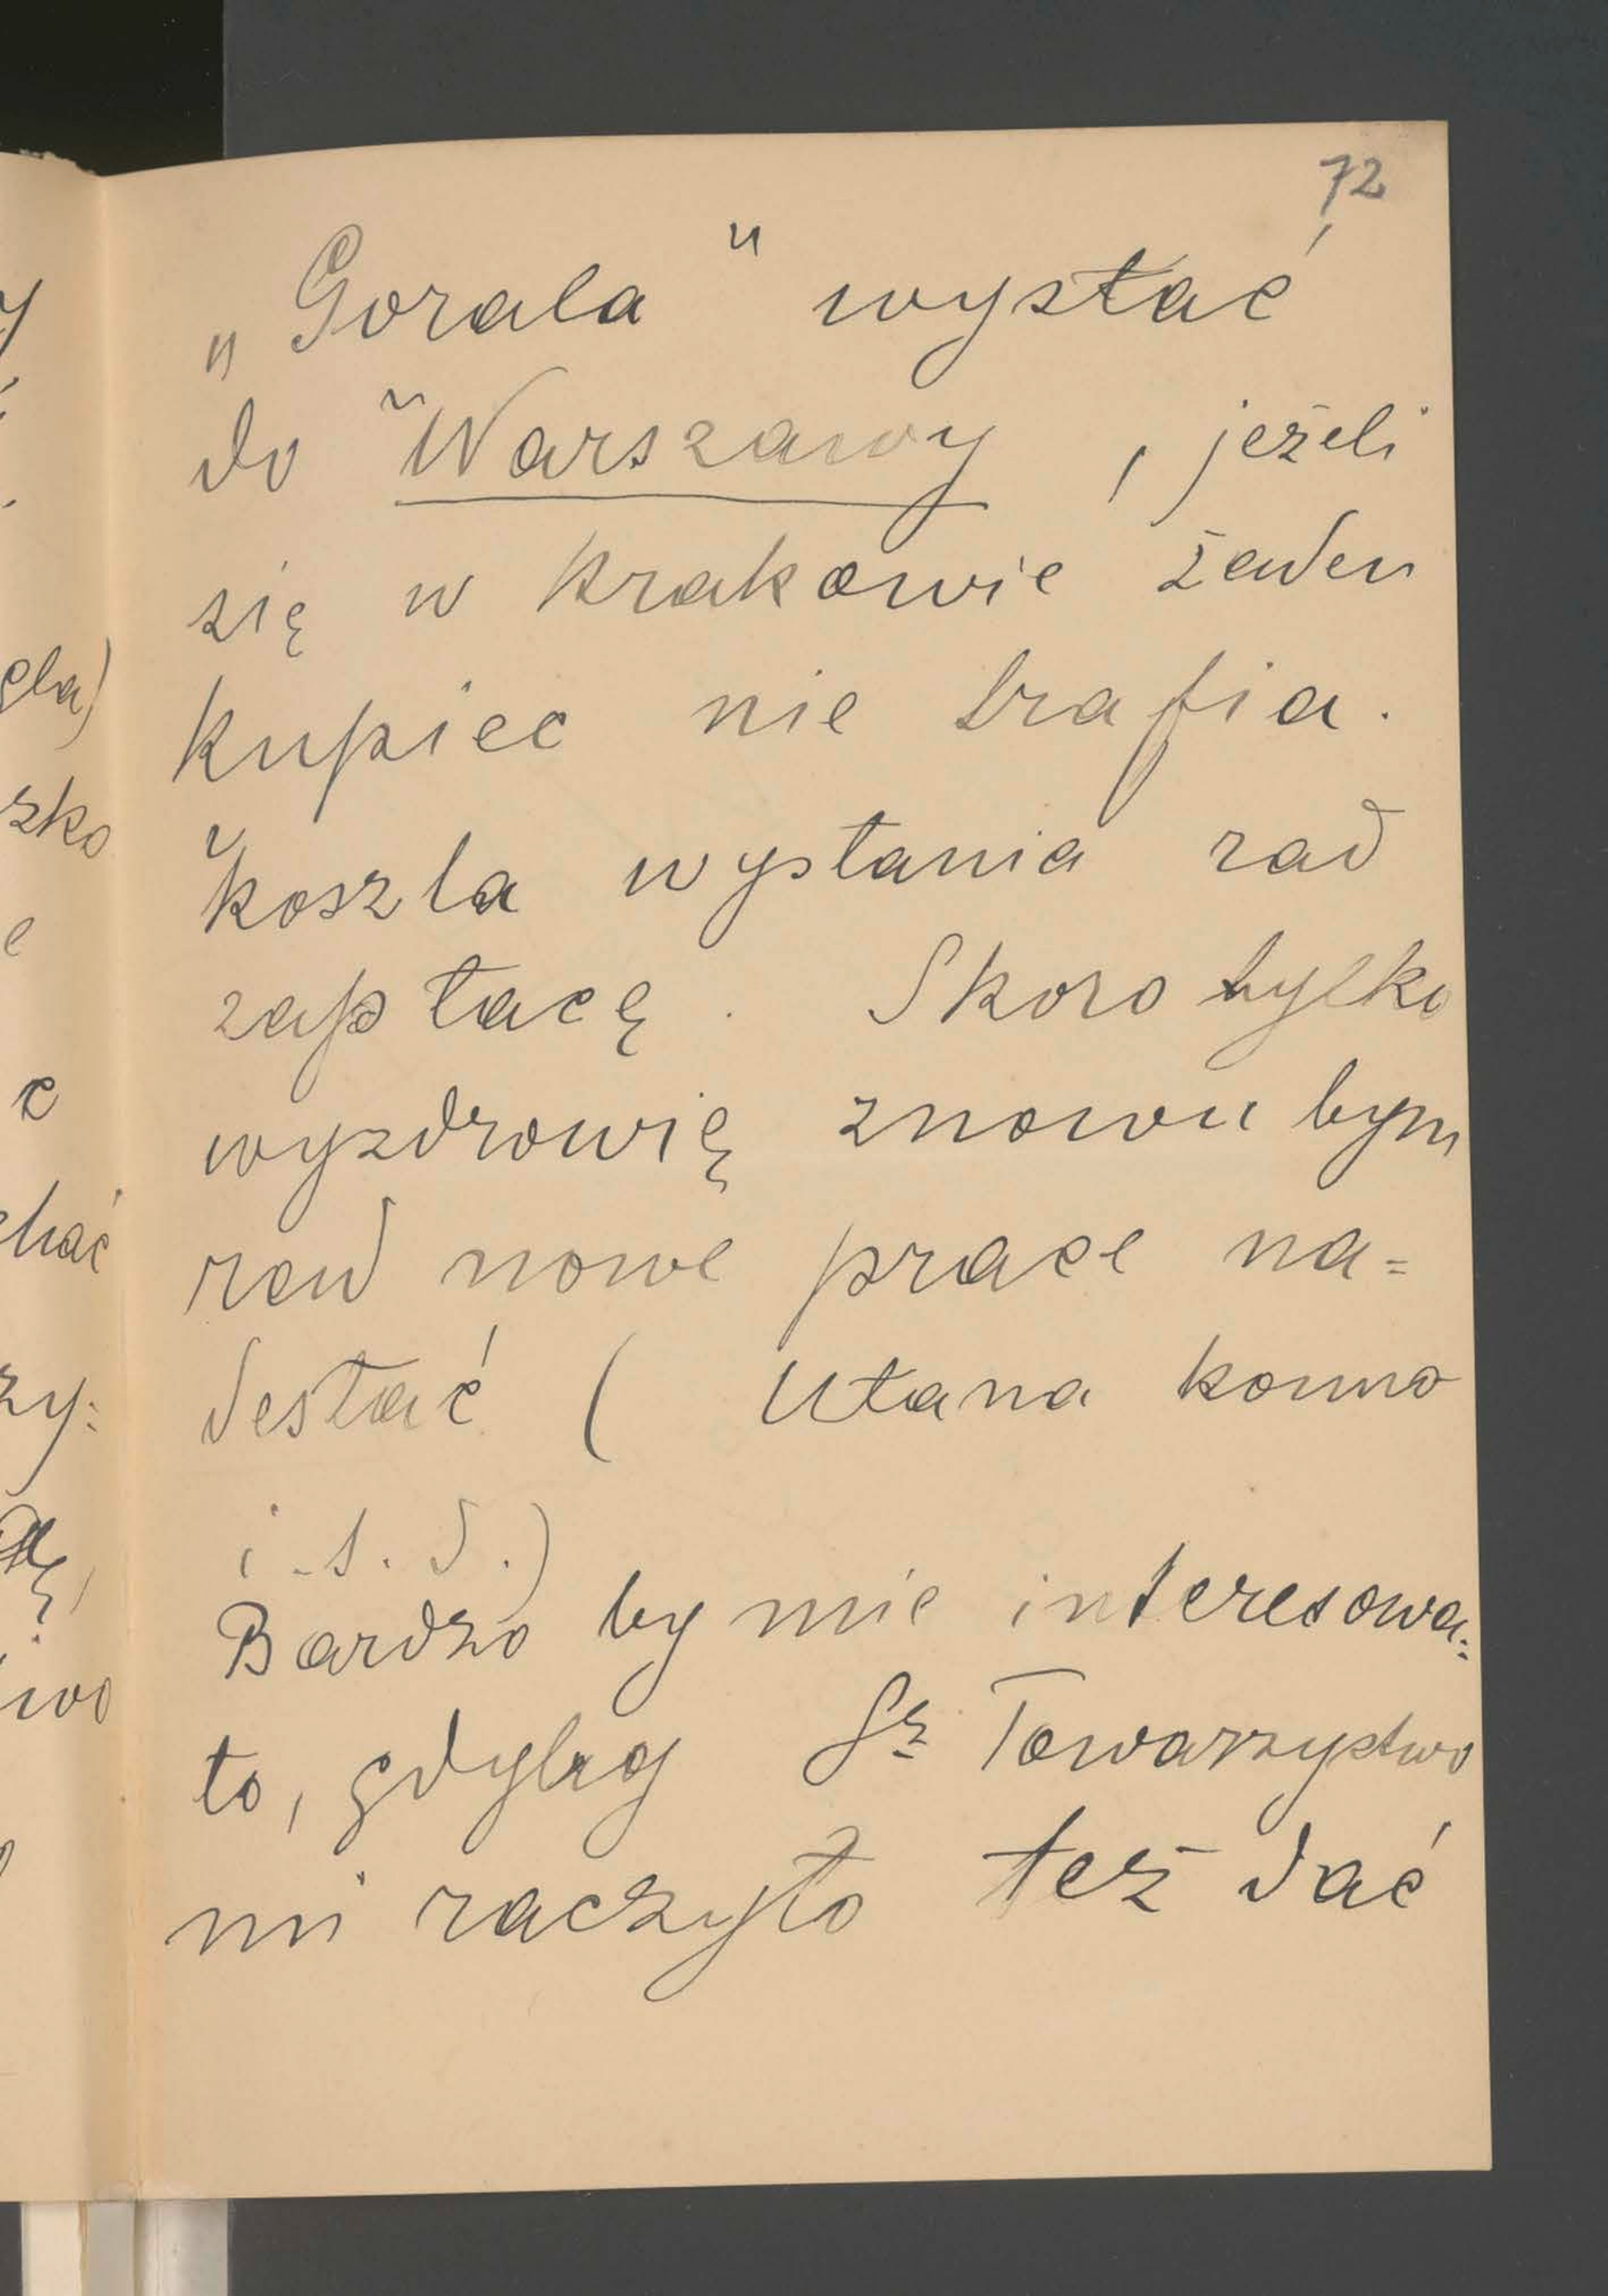 72
„Gorala" wysłać
do Warszawy, jeżeli
się w Krakowie żaden
kupiec nie trafia.
Koszta wysłania rad
zapłacę. Skoro tylko
wyzdrowię znowu bym
rad nowe prace na=
desłać ( Ułana konno
i.t.d.)
Bardzo by mie interesowa=
ło, gdyby Sz. Towarzystwo
mi raczyło też dać
y
gla)
szko
e
c
chać
zy=
iwo